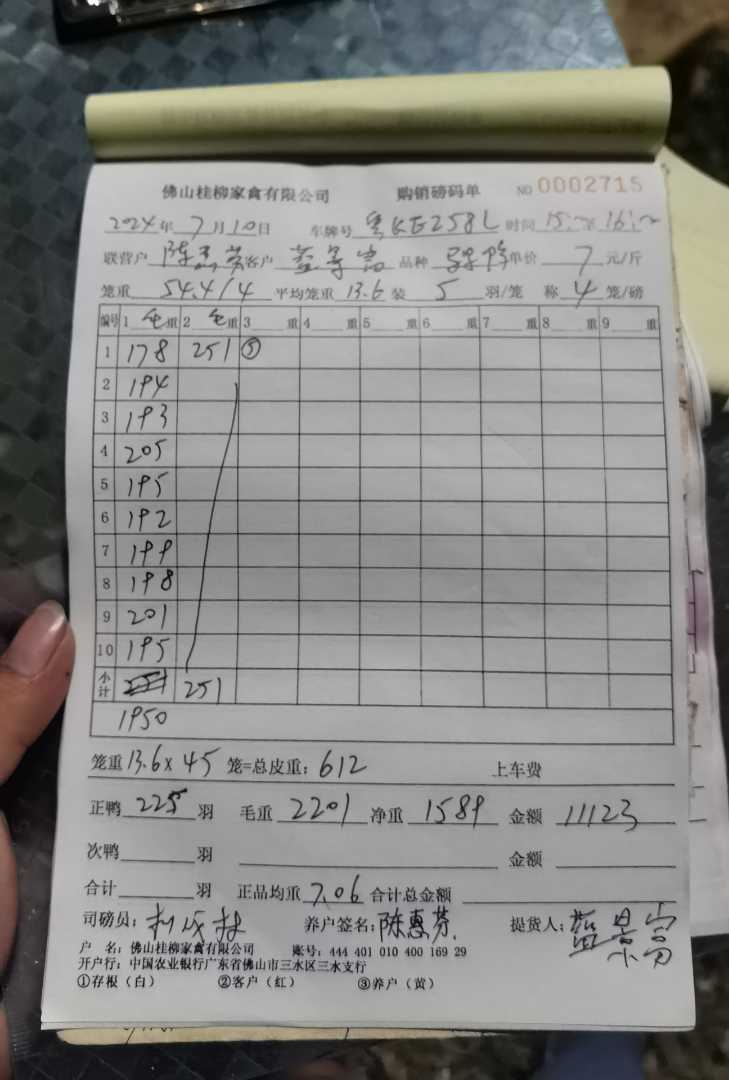 佛山桂柳家禽有限公司 购销磅码单 NO 0002715
2024年7月10日 车牌号 粤KE258L 时间 15:~ 16:~
联营户 陈惠芬 客户 蓝景富 品种 单价 7 元/斤
笼重 54.4/4 平均笼重 13.6 装 5 羽/笼 称 4 笼/磅
编号 1 毛重 2 毛重 3 重 4 重 5 重 6 重 7 重 8 重 9 重
1 178 251 ⑤
2 194
3 193
4 205
5 195
6 192
7 199
8 198
9 201
10 195
小计 251
1950
笼重 13.6 x 45 笼=总皮重: 612 上车费
正鸭 225 羽 毛重 2201 净重 1589 金额 11123
次鸭 羽 金额
合计 羽 正品均重 7.06 合计总金额
司磅员: 养户签名: 陈惠芬. 提货人: 蓝景富
户 名: 佛山桂柳家禽有限公司 账号: 444 401 010 400 169 29
开户行: 中国农业银行广东省佛山市三水区三水支行
①存根(白) ②客户(红) ③养户(黄)